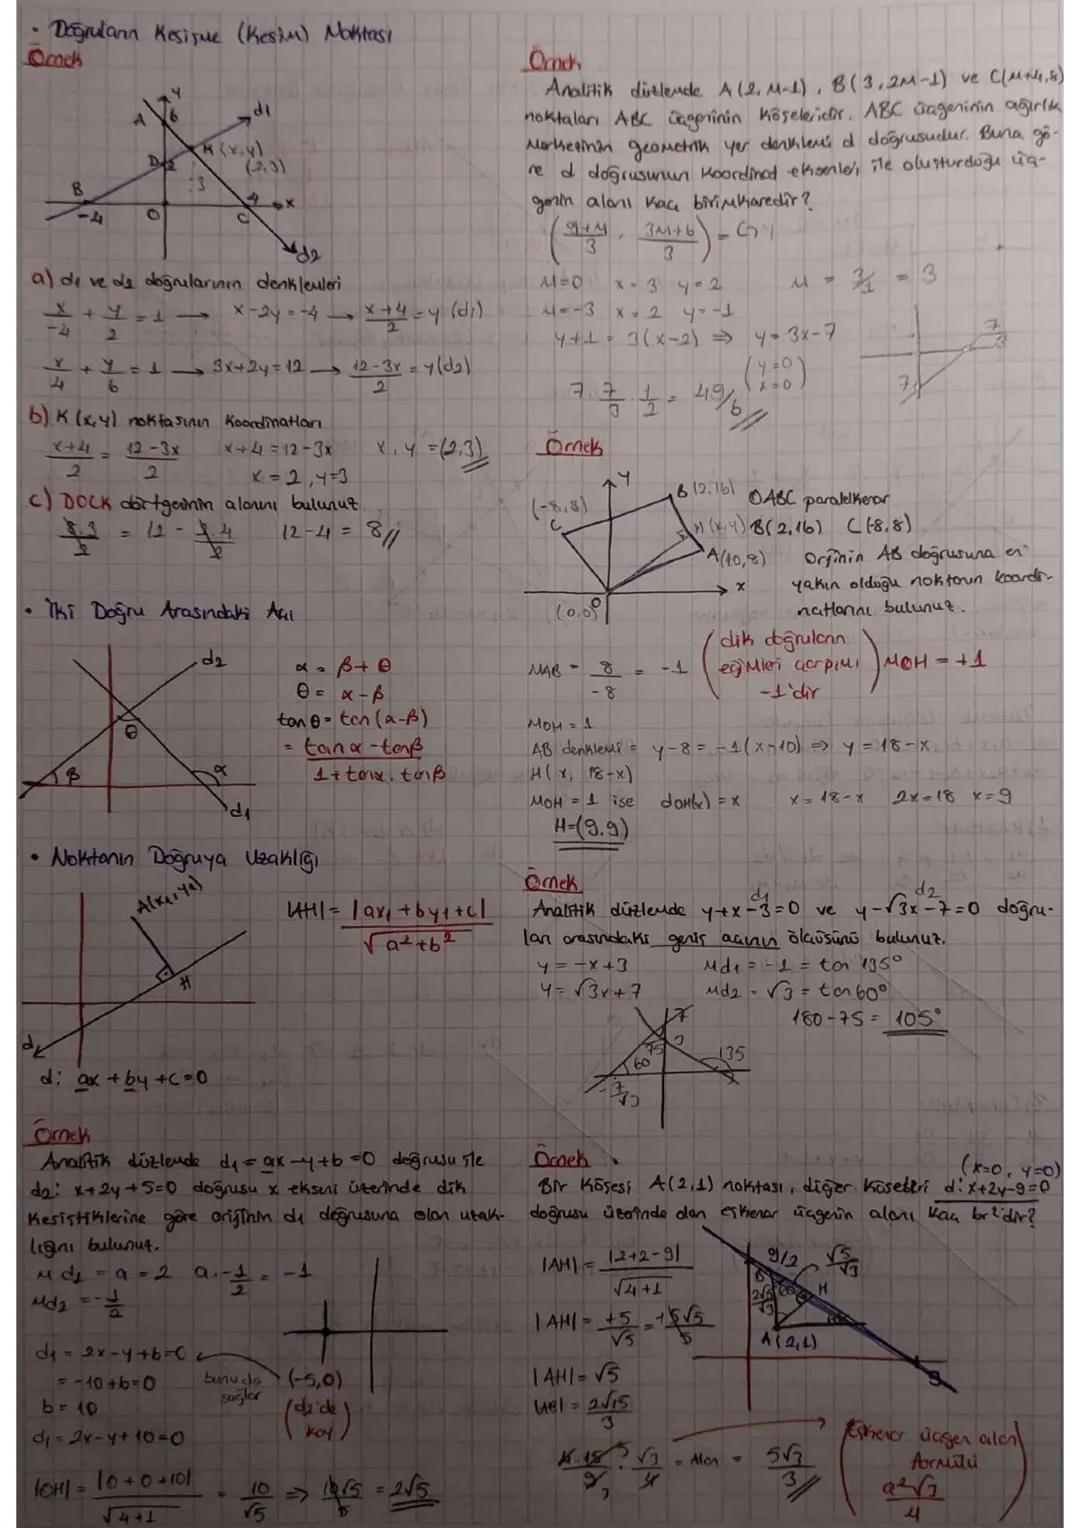 • Doğruların Kesişme (Kesim) Noktası
Örnek
y
A
6
d1
K(x,y)
(2,3)
D
2
:3
B
-4
O
4
C
x
d2
a) d1 ve d2 doğrularının denklemleri
x/-4 + y/2 = 1 → x-2y=-4 → x+4/2 = y (d1)
x/4 + y/6 = 1 → 3x+2y=12 → 12-3x/2 = y(d2)
b) K(x,y) noktasının koordinatları
x+4/2 = 12-3x/2 x+4=12-3x x,y =(2,3)
x=2, y=3
c) DOCK dörtgeninin alanını bulunuz.
8.3/2 = 12 - 2.4/2 12-4 = 8
• İki Doğru Arasındaki Açı
d2
θ
β
α
d1
α = β+θ
θ = α-β
tanθ = tan(α-β)
= tanα - tanβ
1+tanα.tanβ
• Noktanın Doğruya Uzaklığı
A(x1,y1)
H
d
|AH| = |ax1+by1+c|
√a²+b²
d: ax+by+c=0
Örnek
Analitik düzlemde d1=ax-y+b=0 doğrusu ile
d2: x+2y+5=0 doğrusu x ekseni üzerinde dik
kesiştiklerine göre orijinin d1 doğrusuna olan uzak-
lığını bulunuz.
Md1 = a = 2 a.-1/2 = -1
Md2 = -1/2
d1 = 2x-y+b=0
= -10+b=0
b=10
d1=2x-y+10=0
bunu da
sağlar
(-5,0)
(d2'de
koy)
|OH| = |0+0+10|/√4+1 = 10/√5 ⇒ 10√5/5 = 2√5
Örnek
Analitik düzlemde A(2,M-1), B(3,2M-1) ve C(M+4,8)
noktaları ABC üçgeninin köşeleridir. ABC üçgeninin ağırlık
Merkezinin geometrik yer denklemi d doğrusudur. Buna gö-
re d doğrusunun koordinat eksenleri ile oluşturduğu üç-
genin alanı kaç birimkaredir?
(9+M/3, 3M+6/3) =
M=0 x=3 y=2 M = 3/1 = 3
M=-3 x=2 y=-1
y+1 = 3(x-2) ⇒ y=3x-7
(y=0)
(x=0)
7/3
7
7.7/3.1/2 = 49/6
Örnek
y
(-8,8)
C
B (2,16)
H(x,y)
A(10,8)
x
(0,0)
O
OABC paralelkenar
B(2,16) C(-8,8)
Orjinin AB doğrusuna en
yakın olduğu noktanın koordi-
natlarını bulunuz.
MAB = 8/-8 = -1 (dik doğruların
eğimleri çarpımı
-1'dir) MOH = +1
MOH = 1
AB denklemi = y-8=-1(x-10) ⇒ y=18-x
H(x, 18-x)
MOH = 1 ise dOH(x) = x x=18-x 2x=18 x=9
H=(9,9)
Örnek
d1 d2
Analitik düzlemde y+x-3=0 ve y-√3x-7=0 doğru-
ları arasındaki geniş açının ölçüsünü bulunuz.
y=-x+3 Md1=-1=tan 135°
y=√3x+7 Md2=√3=tan60°
180-75 = 105°
7
3
75
60
135
-7/√3
Örnek
(x=0, y=0)
Bir köşesi A(2,1) noktası, diğer köşeleri d:x+2y-9=0
doğrusu üzerinde olan eşkenar üçgenin alanı kaç br²'dir?
|AH| = |2+2-9|/√4+1
|AH| = +5/√5 = +5√5/5
|AH| = √5
|AB| = 2√15/3
9/2
√5/√3
B
60
H
2√5/√3
A(2,1)
9
4.15/9 . √3/4 = Alan = 5√3/3
(Eşkenar üçgen alan
formülü
a²√3/4)